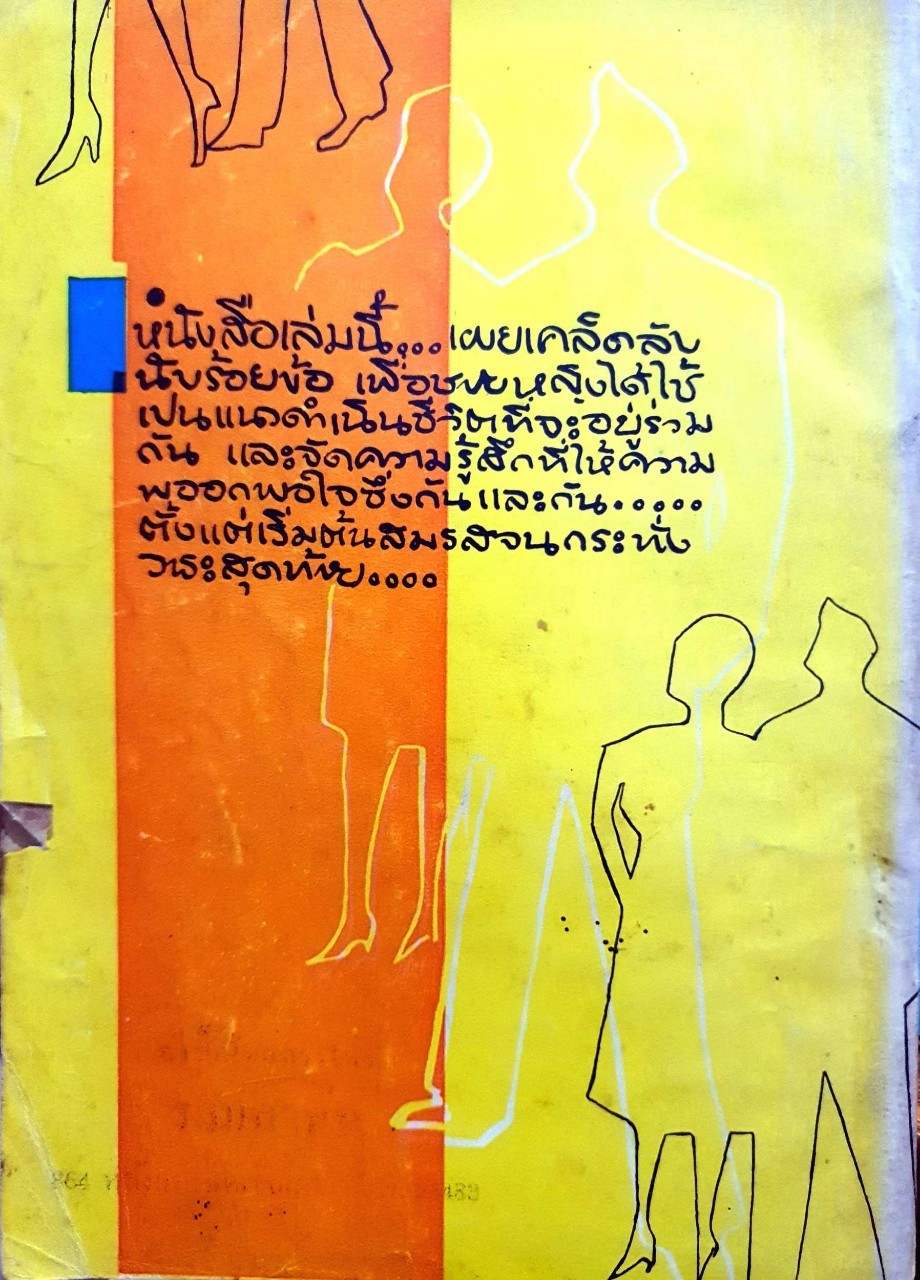 หนังสือเล่มนี้...เผยเคล็ดลับ
นับร้อยข้อ เพื่อชายหญิงได้ใช้
เป็นแนวดำเนินชีวิตที่จะอยู่ร่วม
กัน และจัดความรู้สึกที่ให้ความ
พออกพอใจซึ่งกันและกัน.....
ตั้งแต่เริ่มต้นสมรสจนกระทั่ง
วาระสุดท้าย....